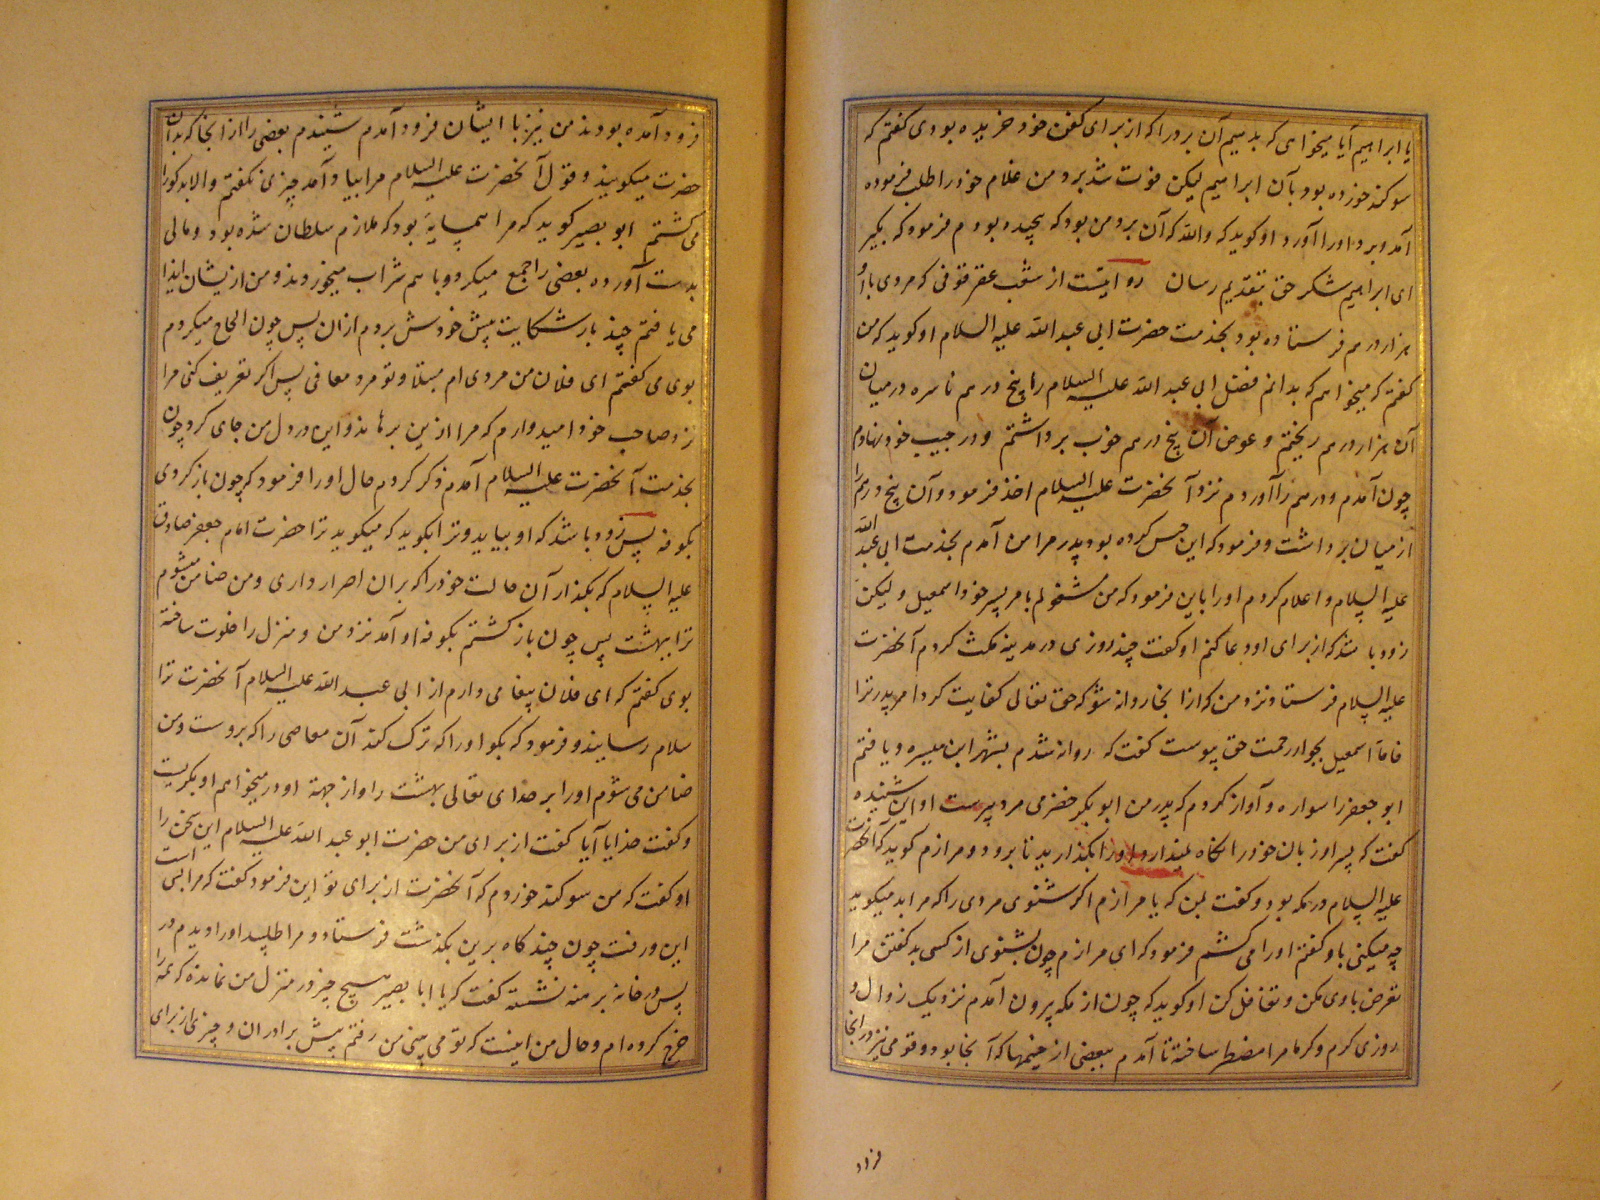 یا ابراهیم آیا میخواهی که بدهیم آن برد را که از برای کفن خود خریده بودی گفتم که
سوکند خورده بود بآن ابراهیم لیکن فوت شد برد من غلام خود را طلب فرموده
آمد و برد او را آورد او کوید که والله که آن برد من بود که پیچیده بودم فرمود که بکیر
ای ابراهیم شکر حق بتقدیم رسان روایتست از شعیب عقرقوفی که مردی با او
هزار درهم فرستاده بود بخدمت حضرت ابی عبد الله علیه السلام او کوید که من
کفتم که میخواهم که بدانم فضل ابی عبد الله علیه السلام را پنج درهم ناسره در میان
آن هزار درهم ریختم و عوض آن پنج درهم خوب برداشتم و در جیب خود نهادم
چون آمدم و درهم را آوردم نزد آنحضرت علیه السلام اخذ فرمود و آن پنج درهم را
از میان برداشت و فرمود که این حبس کرده بود پدر مرا من آمدم بخدمت ابی عبد الله
علیه السلام و اعلام کردم او را باین فرمود که من مشغولم بامر پسر خود اسمعیل و لیکن
زود باشد که از برای او دعا کنم او کفت چند روزی در مدینه مکث کردم آنحضرت
علیه السلام فرستاد نزد من که از اینجا روانه شو که حق تعالی کفایت کرد امر پدر ترا
فاما اسمعیل بجوار رحمت حق پیوست کفت که روانه شدم بشهر ابن هبیره و یافتم
ابو جعفر را سواره و آواز کردم که پدر من ابو بکر حضرمی مرد پیرست او این شنیده
کفت که پسر او زبان خود را نکاه نمیدارد او را بکذارید تا برود و مرازم کوید که آنحضرت
علیه السلام در مکه بود و کفت بمن که یا مرازم اکر شنوی مردی را که مرا بد میکوید
چه میکنی باو کفتم او را می کشم فرمود که ای مرازم چون بشنوی از کسی بد کفتن مرا
تعرض باوی مکن و تغافل کن او کوید که چون از مکه بیرون آمدم نزدیک زوال در
روزی کرم و کرما مرا مضطر ساخته تا آمدم ببعضی از خیمها که آنجا بود و قومی نیز در آنجا
فرود
فرود آمده بودند من نیز با ایشان فرود آمدم شنیدم بعضی را از آنجا که بد آن
حضرت میکویند و قول آنحضرت علیه السلام مرا بیاد آمد چیزی نکفتم و الا بد کو را
می کشتم ابو بصیر کوید که مرا همسایهٔ بود که ملازم سلطان شده بود و مالی
بدست آورده بعضی را جمع میکرد و باهم شراب میخوردند و من از یشان ایذا
می یافتم چند بار شکایت پیش خودش بردم ازان پس چون الحاح میکردم
بوی می کفتم ای فلان من مردی ام مبتلا و تو مرد معافی پس اکر تعریف کنی مرا
نزد صاحب خود امیدوارم که مرا ازین برهاند و این در دل من جای کرد چون
بخدمت آنحضرت علیه السلام آمدم ذکر کردم حال او را فرمود که چون باز کردی
بکوفه پس زود باشد که او بیاید و ترا بکو ید که میکوید ترا حضرت امام جعفر صادق
علیه السلام که بکذار آن حالت خود را که بران اصرار داری و من ضامن میشوم
ترا ببهشت پس چون باز کشتم بکوفه او آمد نزد من و منزل را خلوت ساخته
بوی کفتم که ای فلان پیغامی دارم از ابی عبد الله علیه السلام آنحضرت ترا
سلام رسانیده و فرمود که بکو او را که ترک کند آن معاصی را که بروست و من
ضامن می شوم او را بر خدای تعالی بهشت را و از جهة او در میخواهم او بکریست
و کفت خدایا آیا کفت از برای من حضرت ابو عبد الله علیه السلام این سخن را
او کفت که من سوکند خوردم که آنحضرت از برای تو این فرمود کفت که مرا بس است
این و رفت چون چند کاه برین بکذشت فرستاد و مرا طلبید او را دیدم در
پس در خانه برهنه نشسته کفت که یا ابا بصیر هیچ چیز در منزل من نمانده که همه را
خرج کرده ام و حال من اینست که تو می بینی من رفتم پیش برادران و چیزی از برای